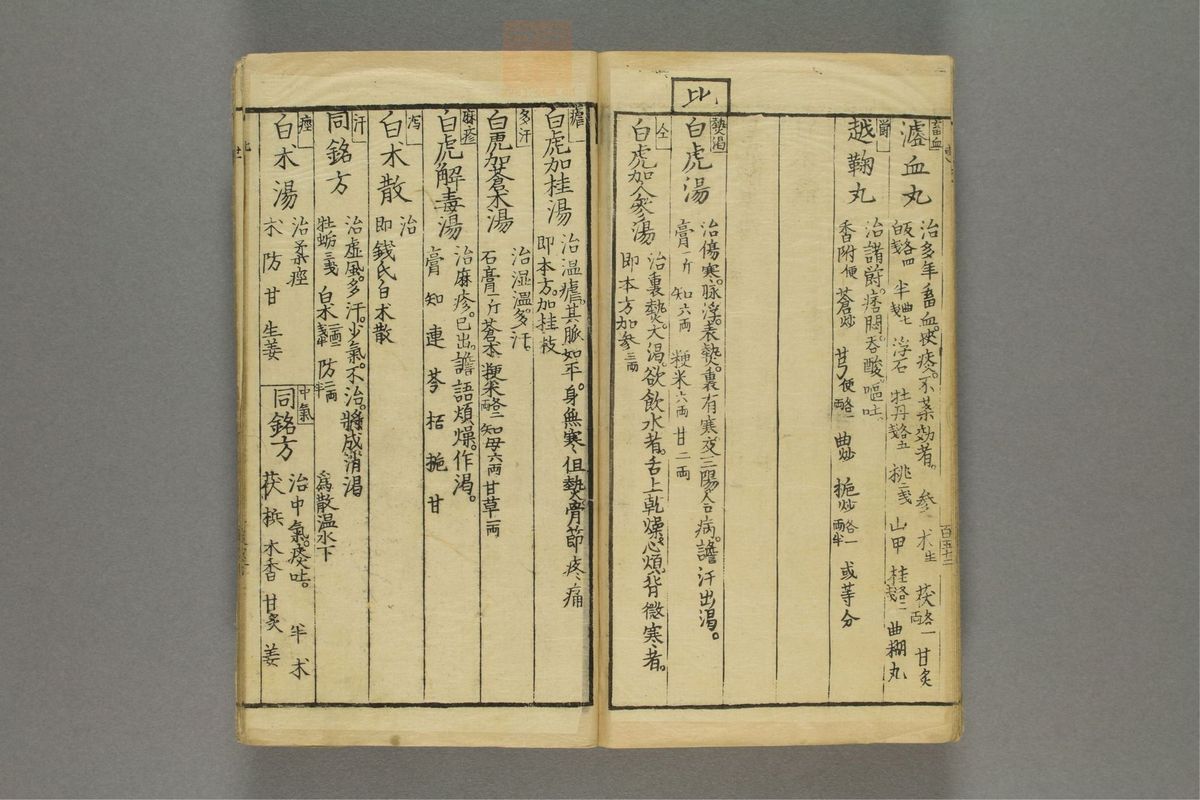 畜血
濾血丸
治多年畜血。使痰。不藥効者。 參 朮生 茯各一両 甘炙
各四戔 半曲七戔 浮石 牡丹各五戔 桃二戔 山甲 桂各二戔 曲糊丸
百五十二
鬱
越鞠丸
治諸鬱。痞悶。吞酸。嘔吐。
香附便 蒼炒 芎便各一両 曲炒 梔炒各一両半 或等分
比
熱渴
白虎湯
治傷寒。脉浮。表熱。裏有寒。及三陽合病。譫 汗出渴。
膏一斤 知六両 粳米六両 甘二両
仝
白虎加人參湯
治裏熱。大渴。欲飲水者。舌上乾燥。心煩。背微寒者。
即本方加參三両
瘧
白虎加桂湯
治温瘧。其脈如平。身無寒。但熱。骨節疼痛
即本方。加桂枝
多汗
白虎加蒼朮湯
治湿温。多汗。
石膏一斤 蒼朮 粳米各二両 知母六両 甘草二両
麻疹
白虎解毒湯
治麻疹。已出。譫語煩燥。作渴。
膏 知 連 芩 栝 梔 甘
泻
白朮散
治
即錢氏白朮散
汗
同銘方
治虛風。多汗。少氣。不治。將成消渴
牡蛎三戔 白朮一両二戔半 防二両半 為散温水下
痙
白朮湯
治柔痙
朮 防 甘 生姜
中氣
同銘方
治中氣。痰吐。 半 朮
茯 檳 木香 甘炙 姜